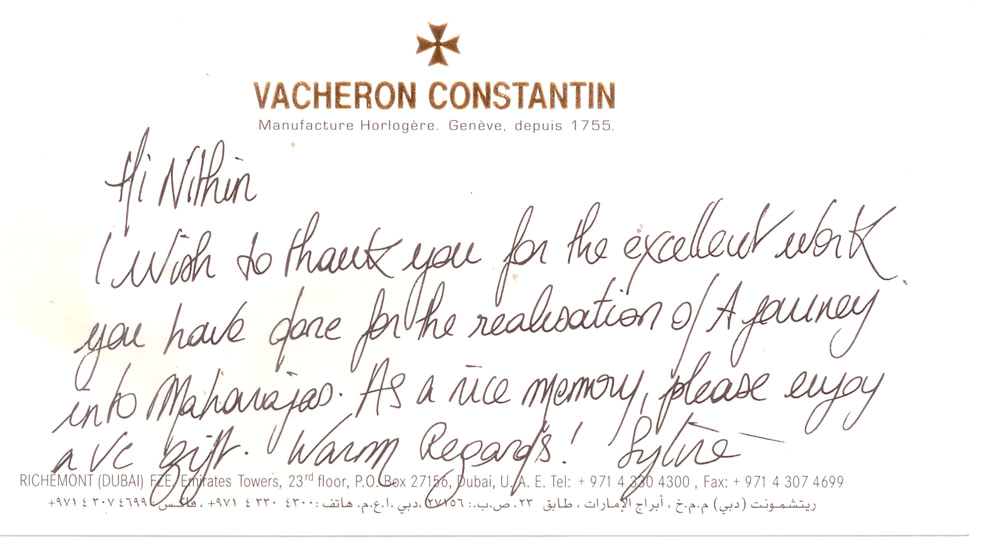 VACHERON CONSTANTIN
Manufacture Horlogère. Genève, depuis 1755.
Hi Nithin
I wish to thank you for the excellent work
you have done for the realisation of A journey
into Maharajas. As a nice memory, please enjoy
a VC gift. Warm Regards!
RICHEMONT (DUBAI) FZE, Emirates Towers, 23rd floor, P.O. Box 27156, Dubai, U. A. E. Tel: + 971 4 330 4300 , Fax: + 971 4 307 4699
ريتشمونت (دبي) م.م.خ ، أبراج الإمارات ، طابق ٢٣، ص.ب.: ٢٧١٥٦، دبي .ا.ع.م. هاتف: ٤٣٠٠ ٣٣٠ ٤ ٩٧١+ ، فاكس ٤٦٩٩ ٣٠٧ ٤ ٩٧١+